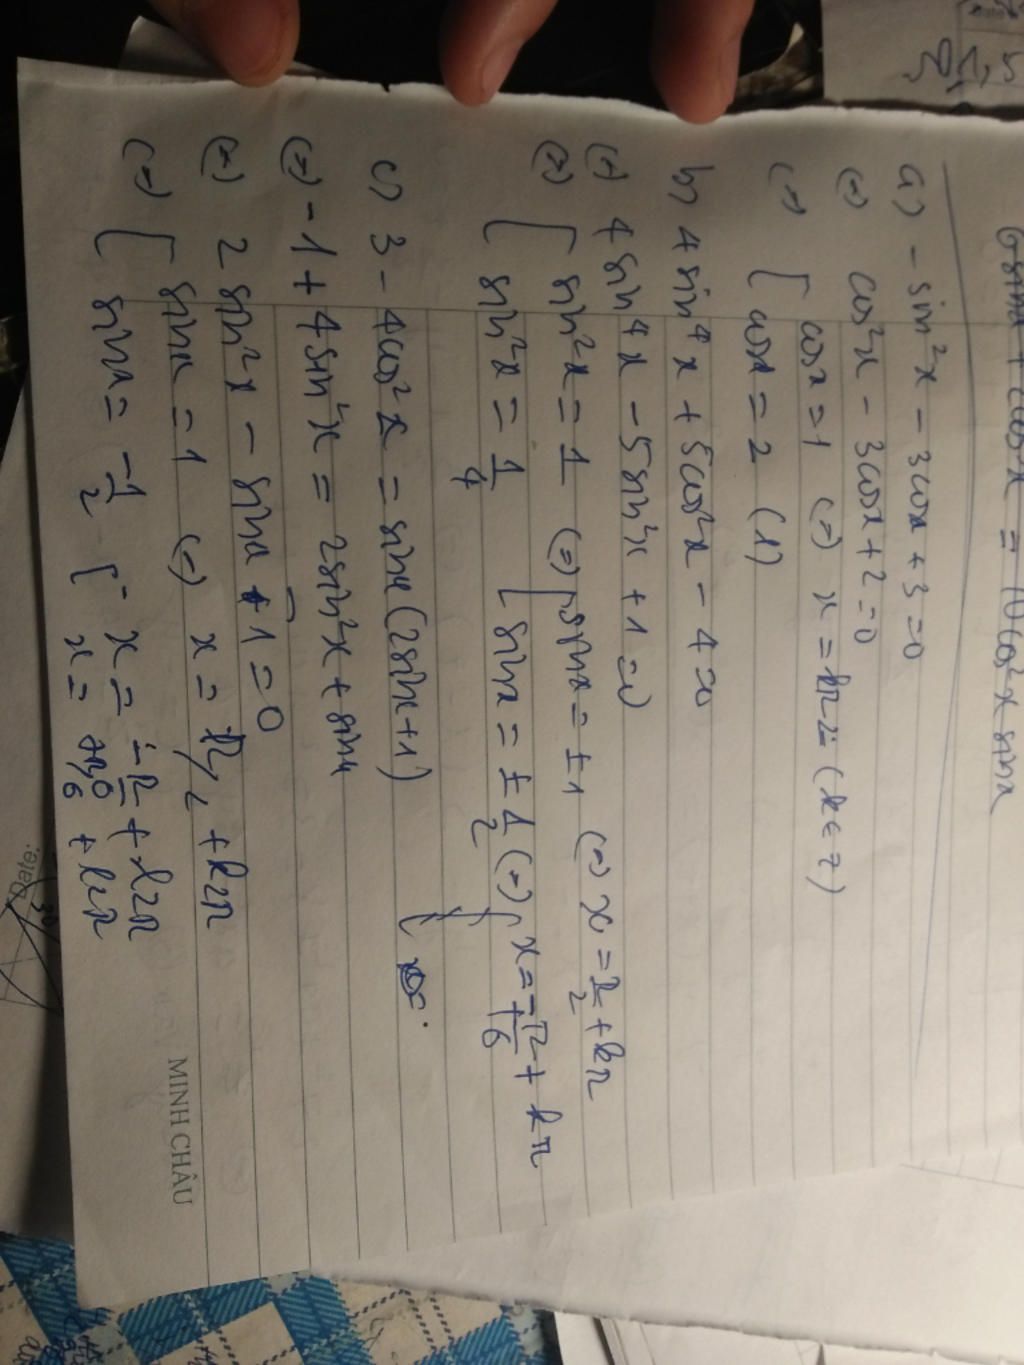 6sinx + cos³x = 10cos²x sinx
a) -sin²x - 3cosx + 3 = 0
(=) cos²x - 3cosx + 2 = 0
(=) [ cosx = 1 (=) x = k2π (k ∈ Z)
cosx = 2 (1)
b) 4sin⁴x + 5cos²x - 4 = 0
(=) 4sin⁴x - 5sin²x + 1 = 0
(=) [ sin²x = 1 (=) [ sinx = ±1 (=) x = π/2 + kπ
sin²x = 1/4 [ sinx = ±1/2 (=) [ x = ±π/6 + kπ
c) 3 - 4cos²x = sinx(2sinx + 1)
(=) -1 + 4sin²x = 2sin²x + sinx
(=) 2sin²x - sinx - 1 = 0
(=) [ sinx = 1 (=) x = π/2 + k2π
sinx = -1/2 [ x = -π/6 + k2π
x = 7π/6 + k2π
MINH CHÂU
Date: